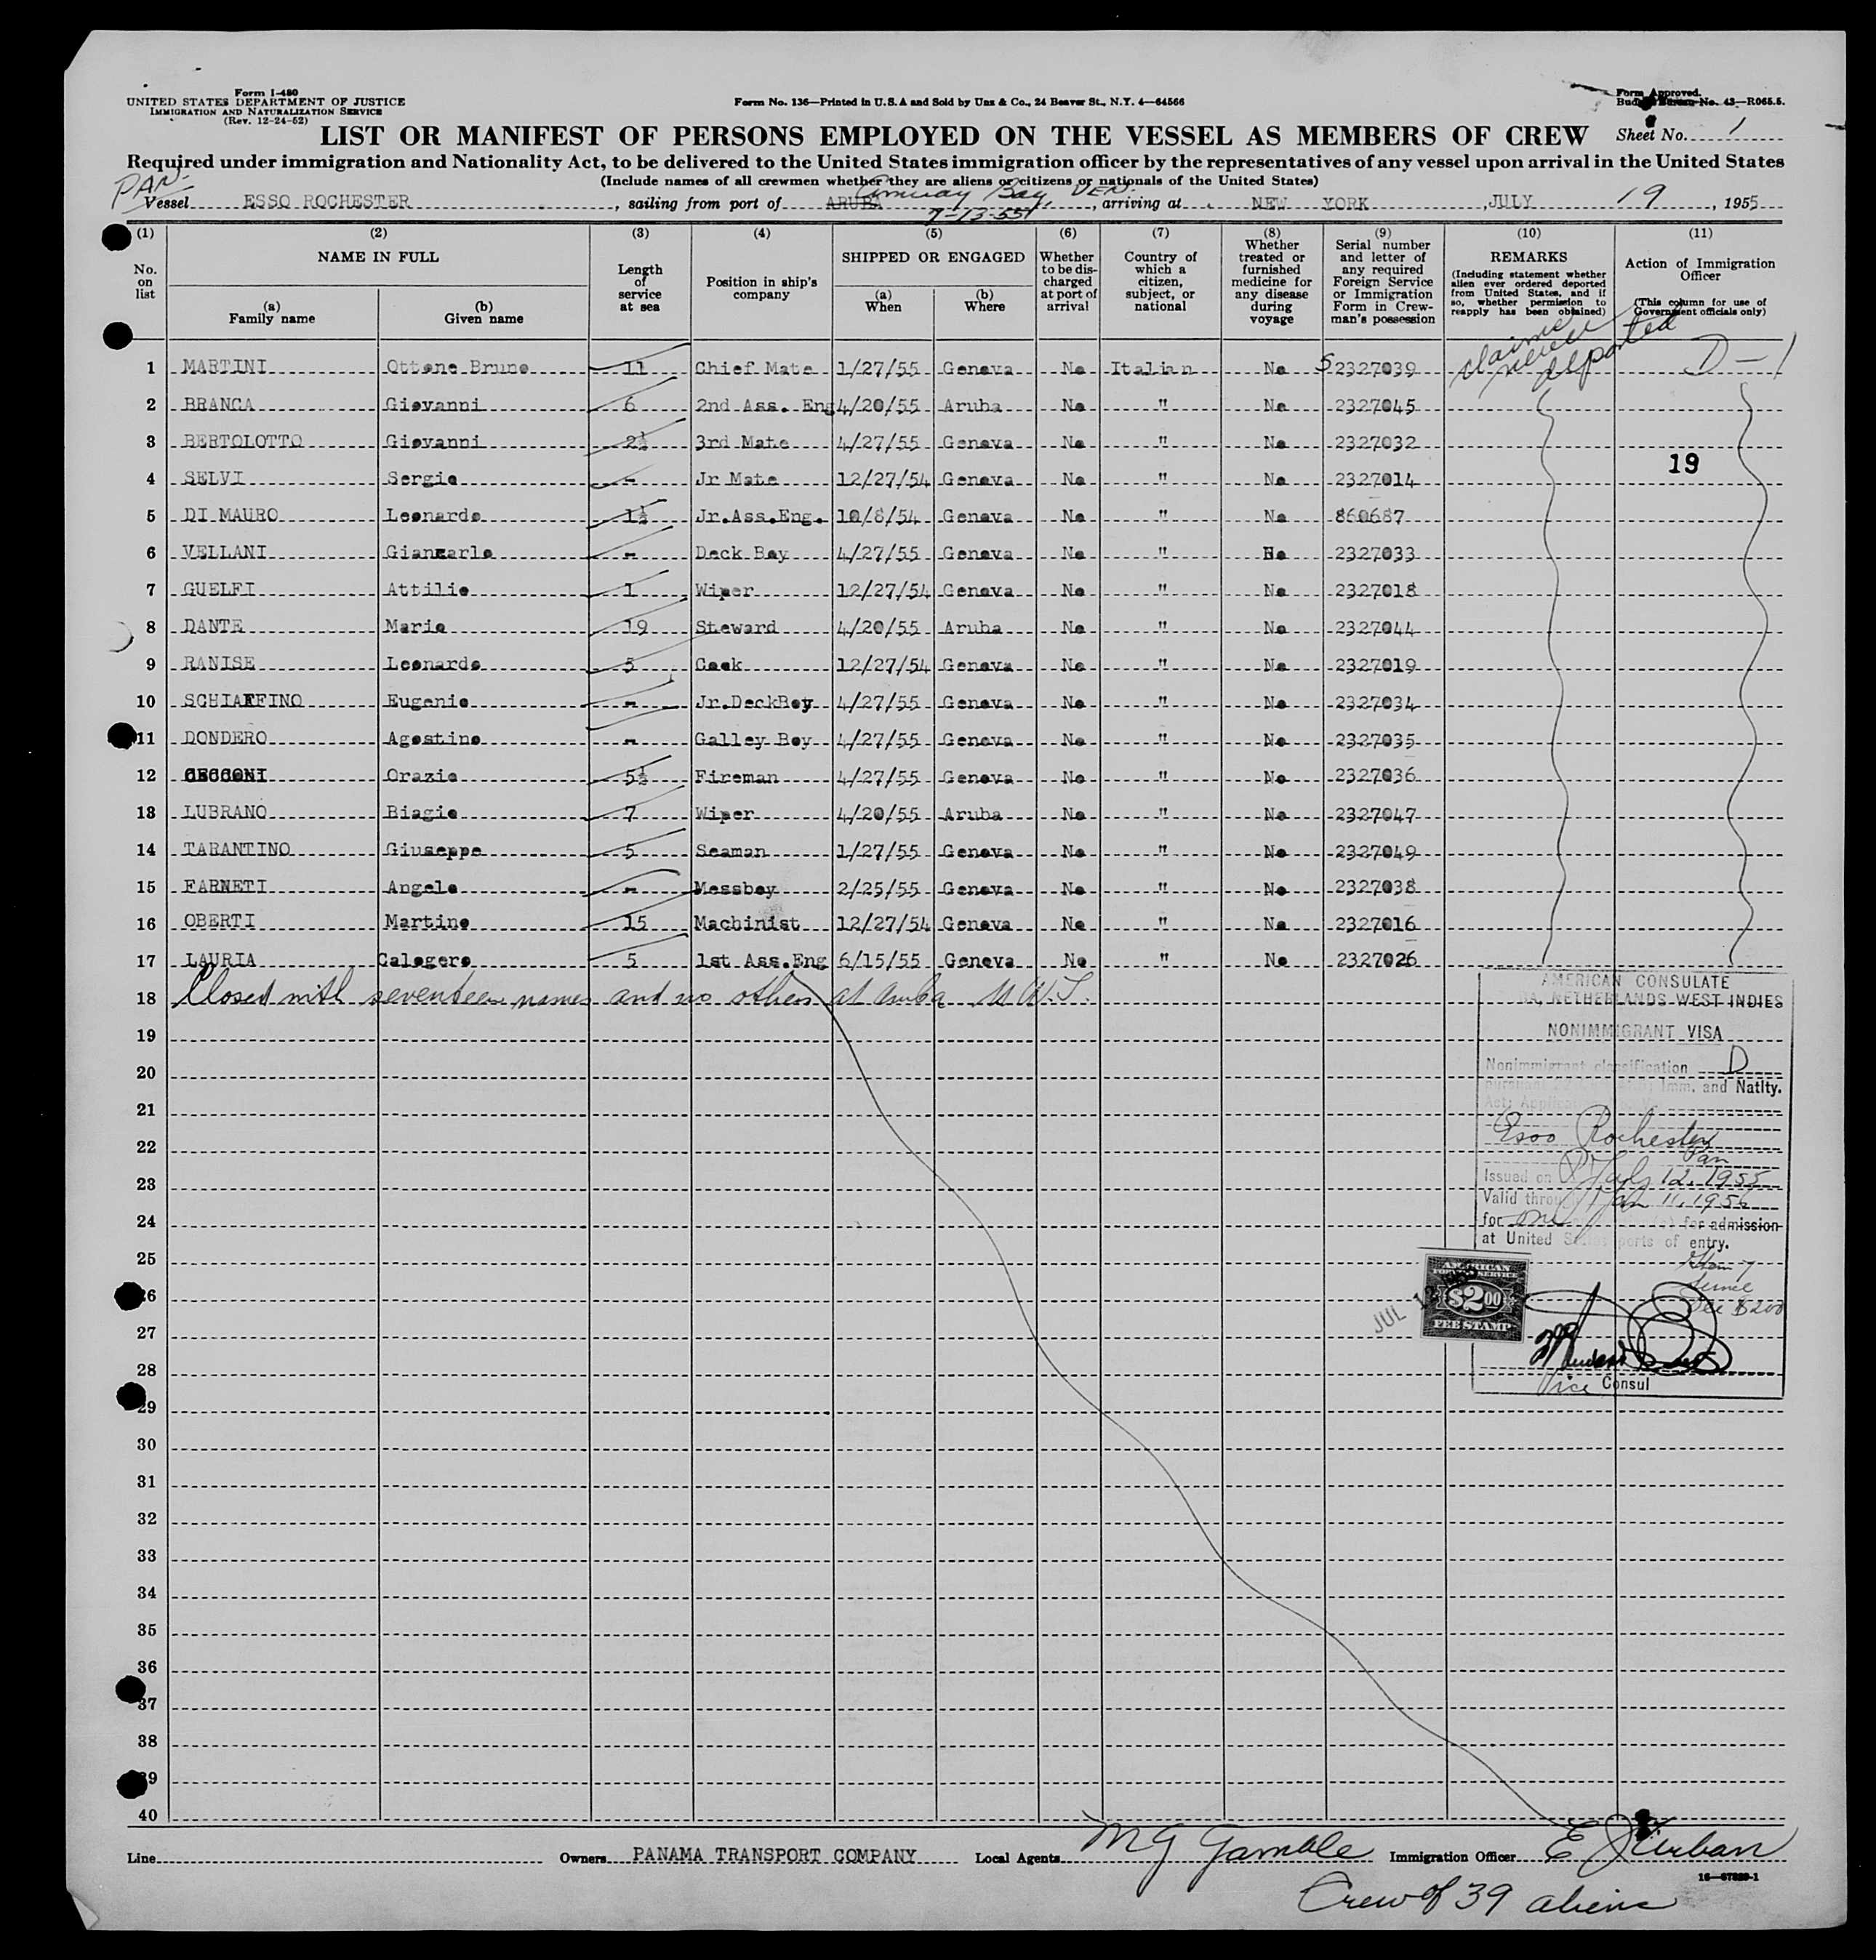 Form I-480
UNITED STATES DEPARTMENT OF JUSTICE
IMMIGRATION AND NATURALIZATION SERVICE
(Rev. 12-24-52)
Form No. 136—Printed in U.S.A and Sold by Unz & Co., 24 Beaver St., N.Y. 4—64566
Form Approved.
Budget Bureau No. 43—R065.5.
LIST OR MANIFEST OF PERSONS EMPLOYED ON THE VESSEL AS MEMBERS OF CREW
Sheet No. 1
Required under immigration and Nationality Act, to be delivered to the United States immigration officer by the representatives of any vessel upon arrival in the United States
(Include names of all crewmen whether they are aliens or citizens or nationals of the United States)
PAN.
Amuay Bay, VEN.
Vessel ESSO ROCHESTER, sailing from port of ARUBA, arriving at NEW YORK, JULY 19, 1955
7-13-55
(1) (2) (3) (4) (5) (6) (7) (8) (9) (10) (11)
No. on list
NAME IN FULL
(a) Family name
(b) Given name
Length of service at sea
Position in ship's company
SHIPPED OR ENGAGED
(a) When
(b) Where
Whether to be discharged at port of arrival
Country of which a citizen, subject, or national
Whether treated or furnished medicine for any disease during voyage
Serial number and letter of any required Foreign Service or Immigration Form in Crewman's possession
REMARKS
(Including statement whether alien ever ordered deported from United States, and if so, whether permission to reapply has been obtained)
Action of Immigration Officer
(This column for use of Government officials only)
claims never deported
1 MARTINI Ottone Bruno 11 Chief Mate 1/27/55 Genova No Italian No S 2327039 D-1
2 BRANCA Giovanni 6 2nd Ass. Eng 4/20/55 Aruba No " No 2327045
3 BERTOLOTTO Giovanni 2½ 3rd Mate 4/27/55 Genova No " No 2327032
19
4 SELVI Sergio - Jr Mate 12/27/54 Genova No " No 2327014
5 DI MAURO Leonardo 1½ Jr.Ass.Eng. 10/8/54 Genova No " No 860687
6 VELLANI Giancarlo - Deck Boy 4/27/55 Genova No " No 2327033
7 GUELFI Attilio 1 Wiper 12/27/54 Genova No " No 2327018
8 DANTE Mario 19 Steward 4/20/55 Aruba No " No 2327044
9 RANISE Leonardo 5 Cook 12/27/54 Genova No " No 2327019
10 SCHIAFFINO Eugenio - Jr.DeckBoy 4/27/55 Genova No " No 2327034
11 DONDERO Agostino - Galley Boy 4/27/55 Genova No " No 2327035
12 CECCONI Orazio 5½ Fireman 4/27/55 Genova No " No 2327036
13 LUBRANO Biagio 7 Wiper 4/20/55 Aruba No " No 2327047
14 TARANTINO Giuseppe 5 Seaman 1/27/55 Genova No " No 2327049
15 FARNETI Angelo - Messboy 2/25/55 Genova No " No 2327038
16 OBERTI Martino 15 Machinist 12/27/54 Genova No " No 2327016
17 LAURIA Calogero 5 1st Ass.Eng 6/15/55 Genova No " No 2327026
18 Closed with seventeen names and no others at Aruba N.W.I.
19
20
21
22
23
24
25
26
27
28
29
30
31
32
33
34
35
36
37
38
39
40
AMERICAN CONSULATE
BA, NETHERLANDS WEST INDIES
NONIMMIGRANT VISA
Nonimmigrant classification D
Imm. and Natlty.
Act; Application
Esso Rochester
Pan
Issued on July 12, 1955
Valid through Jan 11, 1956
for one for admission
at United States ports of entry.
Fee $200
Vice Consul
JUL 12
AMERICAN
FOREIGN SERVICE
$2.00
FEE STAMP
Line
Owners PANAMA TRANSPORT COMPANY
Local Agents M G Gamble
Immigration Officer E J Urban
16—67820-1
Crew of 39 aliens